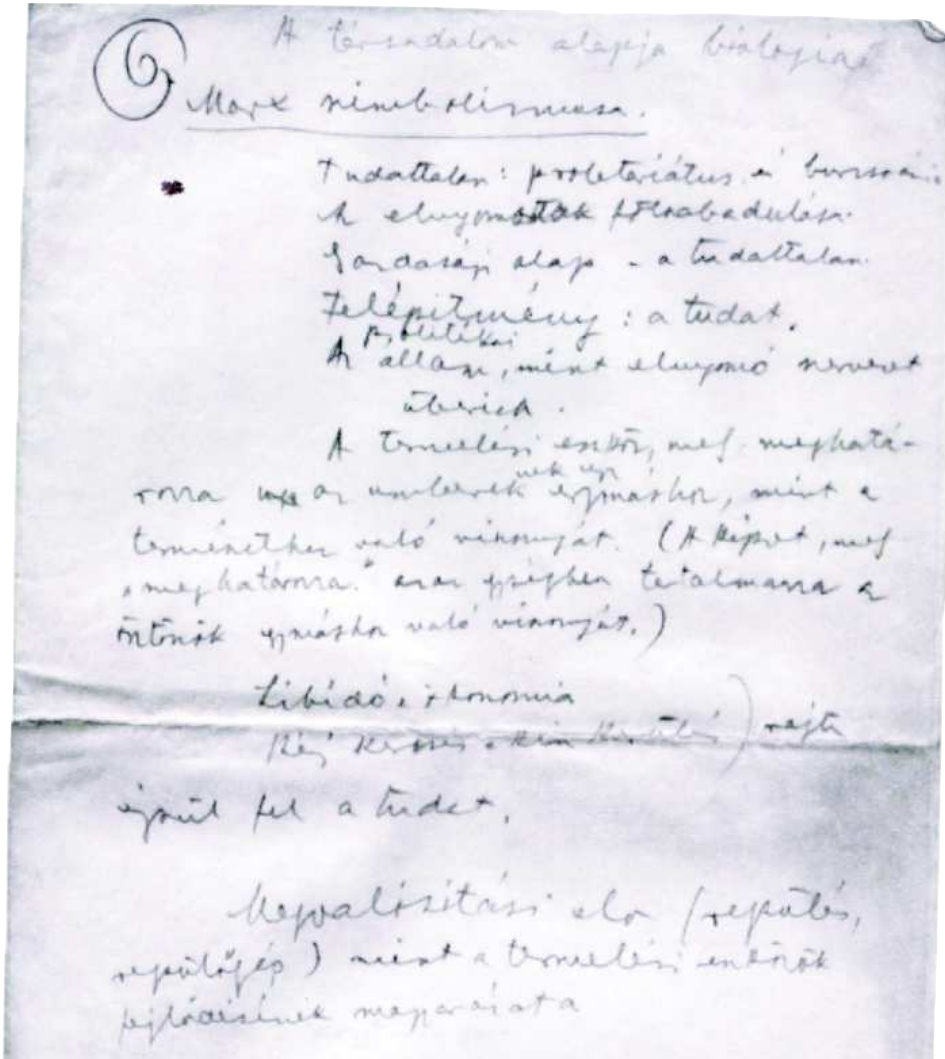 A társadalom alapja biologiai
6,
Marx szimbolizmusa.
Tudattalan: proletáriátus és burzsoá.
A elnyomottak fölszabadulása.
Gazdasági alap - a tudattalan.
Felépitmény: a tudat.
politikai
Az állam, mint elnyomó szervezet
überich.
A termelési eszköz, meg meghatá-
rozza az emberek egymáshoz, mint a
természethez való viszonyát. (A képzet, meg
„meghatározza" azaz egységben tartalmazza a
ösztönök egymáshoz való viszonyát.)
Libidó, ökonomia
rajta
épül fel a tudat.
Megvalósitási elv (repülés,
repülőgép) mint a termelési eszközök
fejlődésének magyarázata